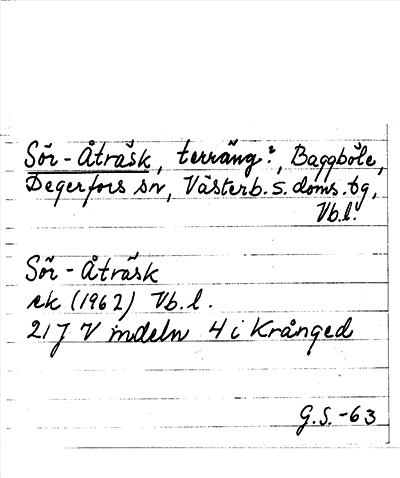 Sör-Åträsk, terräng?, Baggböle,
Degerfors sn, Västerb. s. doms. tg,
Vb.l.
Sör-Åträsk
ek (1962) Vb.l.
21J V indeln 4i Krånged
G.S.-63